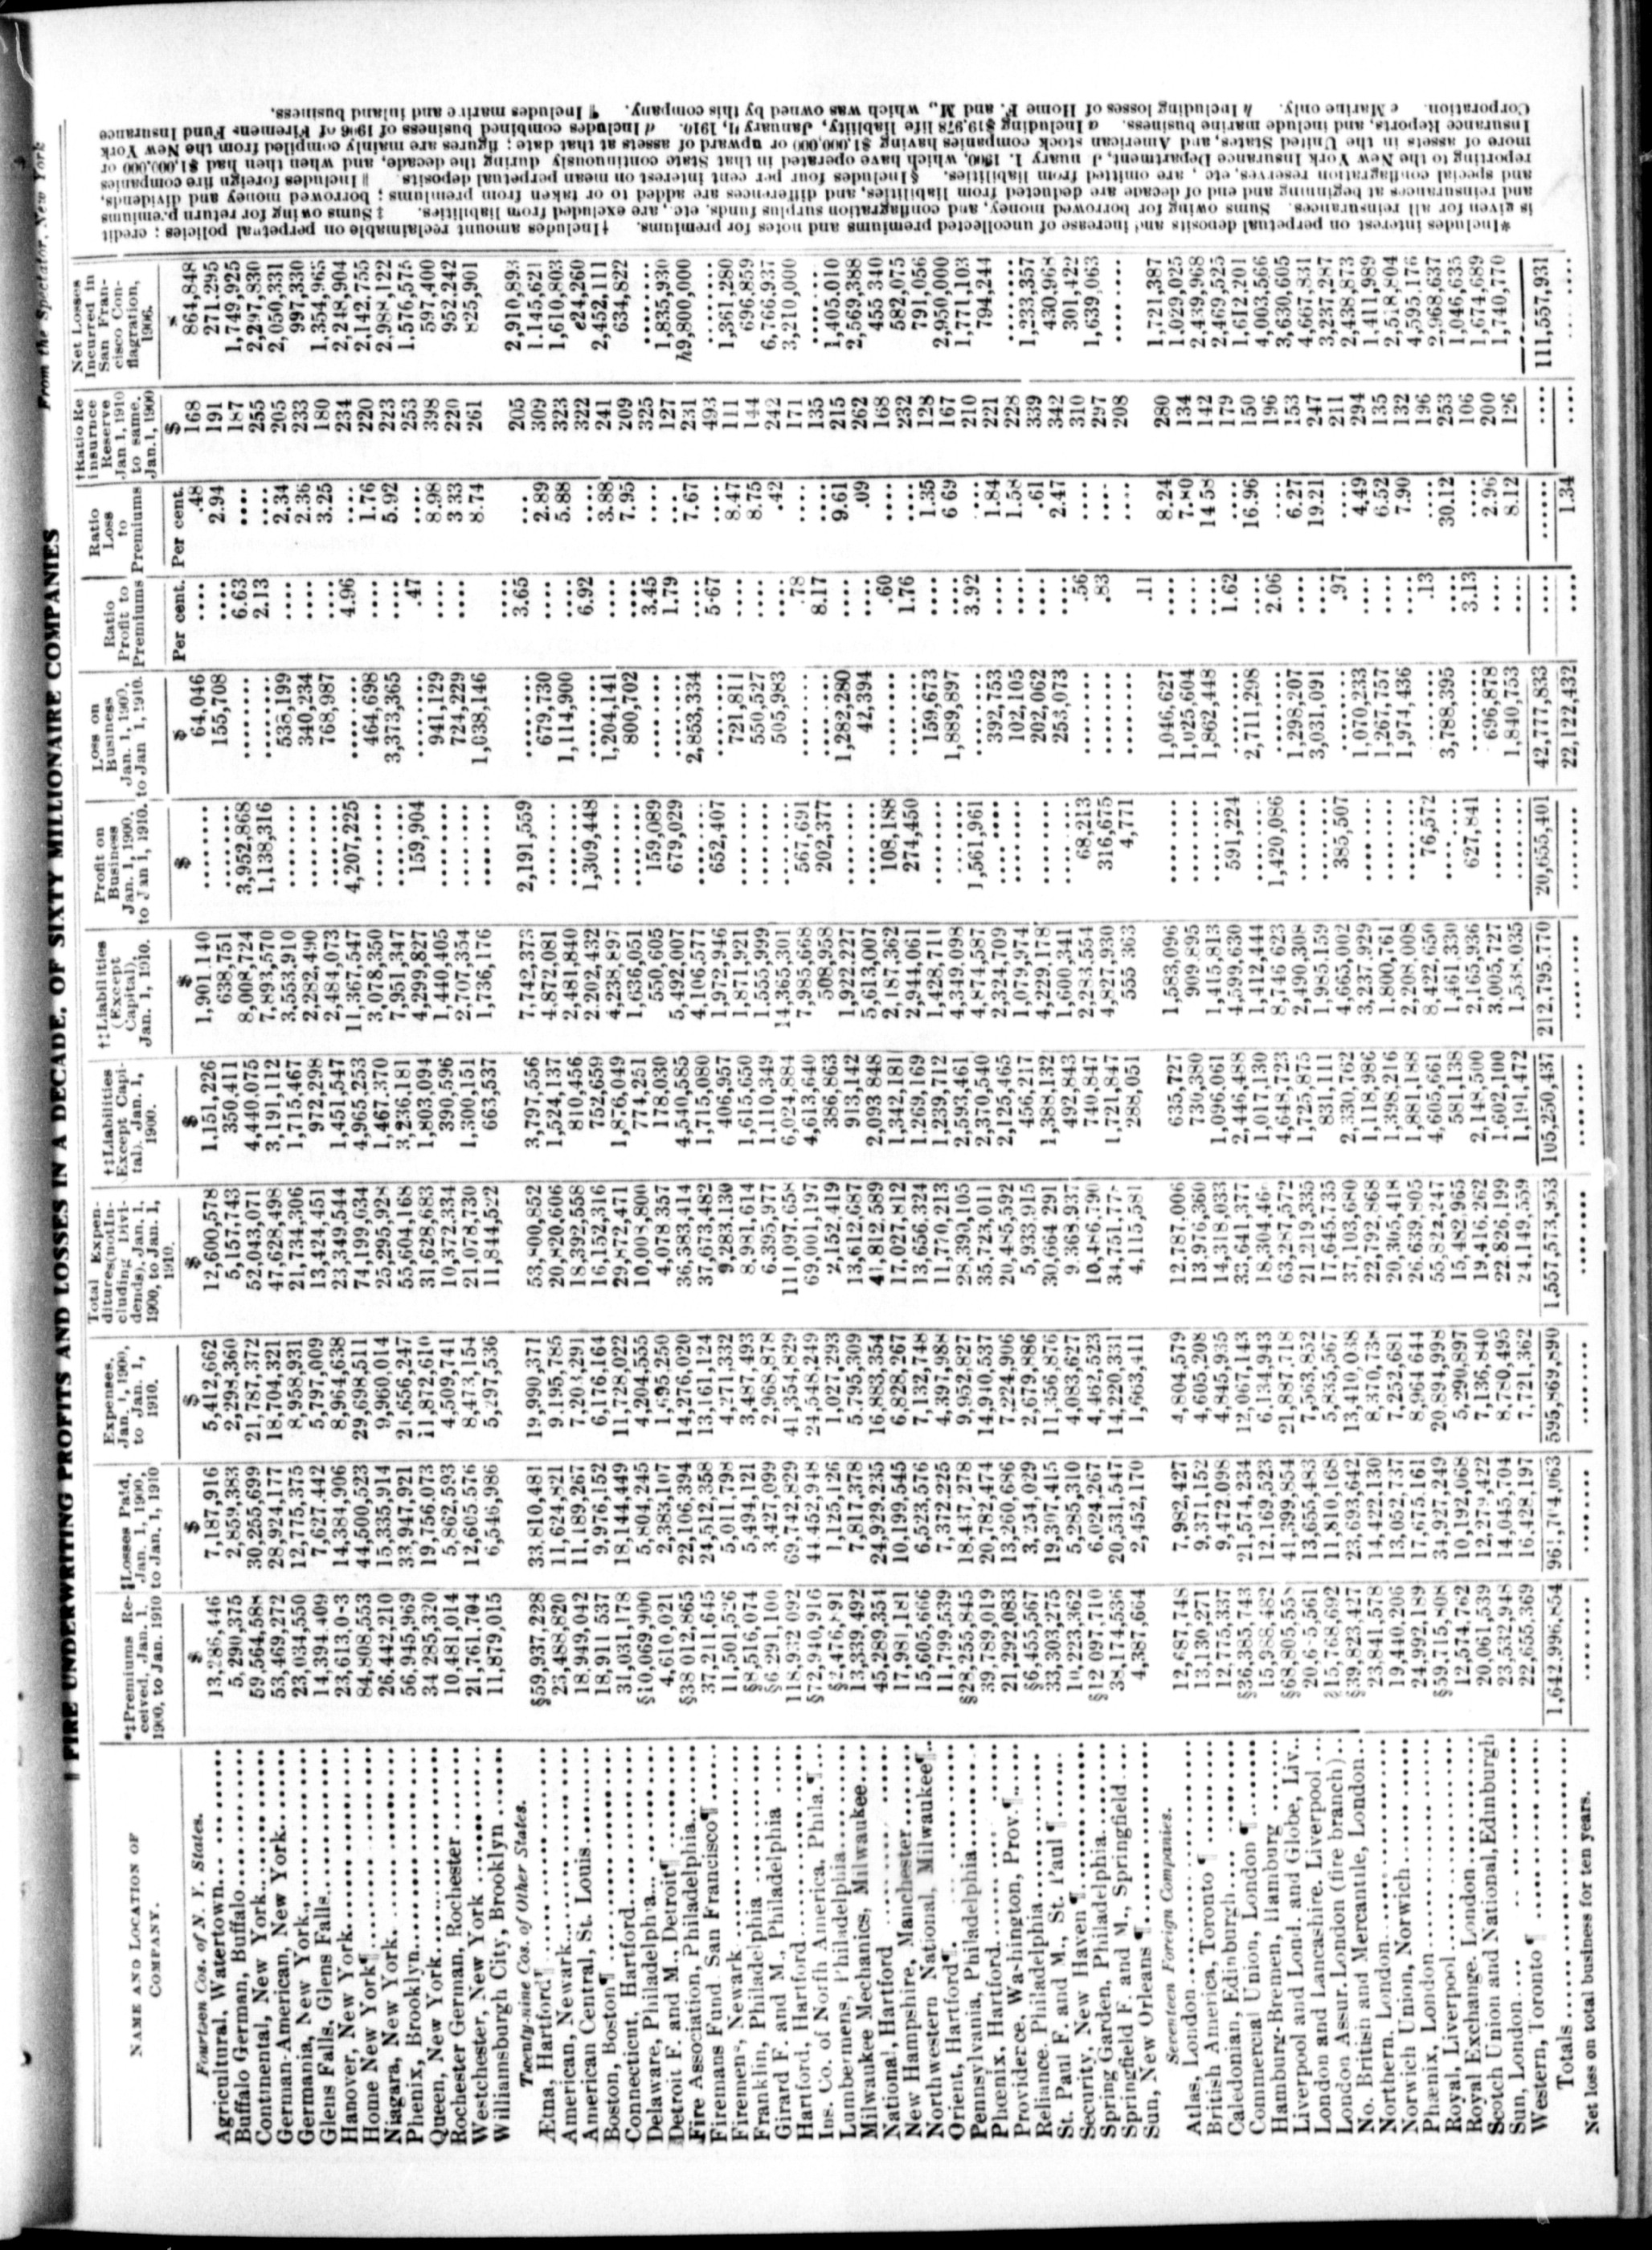 FIRE UNDERWRITING PROFITS AND LOSSES IN A DECADE, OF SIXTY MILLIONAIRE COMPANIES
From the Spectator, New York
NAME AND LOCATION OF COMPANY. | *‡Premiums Received, Jan. 1, 1900, to Jan. 1910 | ‖Losses Paid, Jan. 1, 1900, to Jan. 1, 1910 | Expenses, Jan. 1, 1900, to Jan. 1, 1910. | Total Expenditures (not Including Dividends) Jan. 1, 1900, to Jan. 1, 1910. | †‡Liabilities (Except Capital), Jan. 1, 1900. | †‡Liabilities (Except Capital), Jan. 1, 1910. | Profit on Business Jan. 1, 1900, to Jan 1, 1910. | Loss on Business Jan. 1, 1900, to Jan 1, 1910. | Ratio Profit to Premiums | Ratio Loss to Premiums | †Ratio Reinsurnce Reserve Jan 1, 1910 to same, Jan. 1, 1900 | Net Losses Incurred in San Francisco Conflagration, 1906.
Fourteen Cos. of N. Y. States. $ $ $ $ $ $ $ $ Per cent. Per cent. $ $
Agricultural, Watertown 13,286,446 7,187,916 5,412,662 12,600,578 1,151,226 1,901,140 .... 64,046 .... .48 168 864,848
Buffalo German, Buffalo 5,290,375 2,859,383 2,298,360 5,157,743 350,411 638,751 .... 155,708 .... 2.94 191 271,295
Continental, New York 59,564,588 30,255,699 21,787,372 52,043,071 4,440,075 8,008,724 3,952,868 .... 6.63 .... 187 1,749,925
German-American, New York 53,469,272 28,924,177 18,704,321 47,628,498 3,191,112 7,893,570 1,138,316 .... 2.13 .... 255 2,297,830
Germania, New York 23,034,550 12,775,375 8,958,931 21,734,306 1,715,467 3,553,910 .... 538,199 .... 2.34 205 2,050,331
Glens Falls, Glens Falls 14,394,409 7,627,442 5,797,009 13,424,451 972,298 2,282,490 .... 340,234 .... 2.36 233 997,330
Hanover, New York 14,384,906 8,964,638 23,349,544 1,451,547 2,484,073 .... 768,987 .... 3.25 180 1,354,963
Home New York¶ 84,808,553 44,500,523 29,698,511 74,199,034 4,965,253 11,367,547 4,207,225 .... 4.96 .... 234 2,248,904
Niagara, New York 26,442,210 15,335,914 9,960,014 25,295,928 1,467,370 3,078,350 .... 464,698 .... 1.76 220 2,142,755
Phenix, Brooklyn 56,945,969 33,947,921 21,656,247 55,604,168 3,236,181 7,951,347 .... 3,373,365 .... 5.92 223 2,988,122
Queen, New York 34,285,320 19,756,073 11,872,610 31,628,683 1,803,094 4,299,827 159,904 .... .47 .... 253 1,576,575
Rochester German, Rochester 10,481,014 5,862,593 4,509,741 10,372,334 390,596 1,440,405 .... 941,129 .... 8.98 398 597,400
Westchester, New York 21,761,704 12,605,576 8,473,154 21,078,730 1,300,151 2,707,354 .... 724,229 .... 3.33 220 952,242
Williamsburgh City, Brooklyn 11,879,015 6,546,986 5,297,536 11,844,522 663,537 1,736,176 .... 1,038,146 .... 8.74 261 825,901
Twenty-nine Cos. of Other States.
Ætna, Hartford¶ §59,937,238 33,810,481 19,990,371 53,800,852 3,797,556 7,742,373 2,191,559 .... 3.65 .... 205 2,910,893
American, Newark 23,488,820 11,624,821 9,195,785 20,820,606 1,524,137 4,872,081 .... 679,730 .... 2.89 309 1,145,621
American Central, St. Louis 18,949,042 11,189,267 7,203,291 18,392,558 810,456 2,481,840 .... 1,114,900 .... 5.88 323 1,610,803
Boston, Boston¶ 18,911,537 9,976,152 6,176,164 16,152,316 752,659 2,202,432 1,309,448 .... 6.92 .... 322 e24,260
Connecticut, Hartford 31,031,178 18,144,449 11,728,022 29,872,471 1,876,049 4,238,897 .... 1,204,141 .... 3.88 241 2,452,111
Delaware, Philadelphia §10,069,900 5,804,245 4,204,555 10,008,800 774,251 1,636,051 .... 800,702 .... 7.95 209 634,822
Detroit F. and M., Detroit¶ 4,610,021 2,383,107 1,695,250 4,078,357 178,030 550,605 159,089 .... 3.45 .... 325 ....
Fire Association, Philadelphia §38,012,865 22,106,394 14,276,020 36,383,414 4,540,585 5,492,007 679,029 .... 1.79 .... 127 1,835,930
Firemans Fund San Francisco¶ 37,211,645 24,512,358 13,161,124 37,673,482 1,715,080 4,106,577 .... 2,853,334 .... 7.67 231 h9,800,000
Firemens, Newark 11,501,526 5,011,798 4,271,332 9,283,130 406,957 1,972,946 652,407 .... 5.67 .... 493 ....
Franklin, Philadelphia §8,516,074 5,494,121 3,487,493 8,981,614 1,615,650 1,871,921 .... 721,811 .... 8.47 111 1,361,280
Girard F. and M., Philadelphia §6,291,100 3,427,099 2,968,878 6,395,977 1,110,349 1,555,999 .... 550,527 .... 8.75 144 696,859
Hartford, Hartford 118,932,092 69,742,829 41,354,829 111,097,658 6,024,884 14,365,301 .... 505,983 .... .42 242 6,766,937
Ins. Co. of North America, Phila.¶ §72,940,916 44,452,948 24,548,249 69,001,197 4,613,640 7,985,668 567,691 .... .78 .... 171 3,210,000
Lumbermens, Philadelphia §2,476,891 1,125,126 1,027,293 2,152,419 386,863 508,958 202,377 .... 8.17 .... 135 ....
Milwaukee Mechanics, Milwaukee 13,339,492 7,817,378 5,795,309 13,612,687 913,142 1,922,227 .... 1,282,280 .... 9.61 215 1,405,010
National, Hartford 45,289,351 24,929,235 16,883,354 41,812,589 2,093,848 5,613,007 .... 42,394 .... .09 262 2,569,388
New Hampshire, Manchester 17,981,181 10,199,545 6,828,267 17,027,812 1,342,181 2,187,362 108,188 .... .60 .... 168 455,340
Northwestern National, Milwaukee¶ 15,605,666 6,523,576 7,132,748 13,656,324 1,269,169 2,944,061 274,450 .... 1.76 .... 232 582,075
Orient, Hartford¶ 11,799,539 7,372,225 4,397,988 11,770,213 1,239,712 1,428,711 .... 159,673 .... 1.35 128 791,056
Pennsylvania, Philadelphia §28,255,845 18,437,278 9,952,827 28,390,105 2,593,461 4,349,098 .... 1,889,897 .... 6.69 167 2,950,000
Phoenix, Hartford 39,789,019 20,782,474 14,940,537 35,723,011 2,370,540 4,874,587 1,561,961 .... 3.92 .... 210 1,771,103
Providence, Washington, Prov.¶ 21,292,083 13,260,686 7,224,906 20,485,592 2,125,465 2,324,709 .... 392,753 .... 1.84 221 794,244
Reliance, Philadelphia §6,455,567 3,254,029 2,679,886 5,933,915 456,217 1,079,974 .... 102,105 .... 1.58 228 ....
St. Paul F. and M., St. Paul¶ 33,303,275 19,307,415 11,356,876 30,664,291 1,388,132 4,229,178 .... 202,062 .... .61 339 1,233,357
Security, New Haven¶ 10,223,362 5,285,310 4,083,627 9,368,937 492,843 1,600,341 .... 253,073 .... 2.47 342 430,968
Spring Garden, Philadelphia §12,097,710 6,024,267 4,462,523 10,486,790 740,847 2,283,554 68,213 .... .56 .... 310 301,422
Springfield F. and M., Springfield 38,174,536 20,531,547 14,220,331 34,751,778 1,721,847 4,827,930 316,675 .... .83 .... 297 1,639,063
Sun, New Orleans¶ 4,387,664 2,452,170 1,663,411 4,115,581 288,051 555,363 4,771 .... .11 .... 208 ....
Seventeen Foreign Companies.
Atlas, London 12,687,748 7,982,427 4,804,579 12,787,006 635,727 1,583,096 .... 1,046,627 .... 8.24 280 1,721,387
British America, Toronto¶ 13,130,271 9,371,152 4,605,208 13,976,360 730,380 909,895 .... 1,025,604 .... 7.80 134 1,029,025
Caledonian, Edinburgh 12,775,337 9,472,098 4,845,935 14,318,033 1,096,061 1,415,813 .... 1,862,448 .... 14.58 142 2,439,968
Commercial Union, London¶ §36,385,743 21,574,234 12,067,143 33,641,377 2,446,488 4,599,630 591,224 .... 1.62 .... 179 2,469,525
Hamburg-Bremen, Hamburg 15,988,482 12,169,523 6,134,943 18,304,466 1,017,130 1,412,444 .... 2,711,298 .... 16.96 150 1,612,201
Liverpool and Lond. and Globe, Liv. §68,805,558 41,399,854 21,887,718 63,287,572 4,648,723 8,746,623 1,420,086 .... 2.06 .... 196 4,003,566
London and Lancashire, Liverpool 13,655,483 7,563,852 21,219,335 1,725,875 2,490,308 .... 1,298,207 .... 6.27 153 3,630,605
London Assur. London (fire branch) §15,768,692 11,810,168 5,835,567 17,645,735 831,111 1,985,159 .... 3,031,091 .... 19.21 247 4,667,831
No. British and Mercantile, London §39,823,427 23,693,642 13,410,038 37,103,680 2,330,762 4,665,002 385,507 .... .97 .... 211 3,237,287
Northern, London 23,841,578 14,422,130 8,370,738 22,792,868 1,118,986 3,237,929 .... 1,070,233 .... 4.49 294 2,438,873
Norwich Union, Norwich 19,440,206 13,052,737 7,252,681 20,305,418 1,398,216 1,800,761 .... 1,267,757 .... 6.52 135 1,411,989
Phœnix, London 24,992,189 17,675,161 8,964,644 26,639,805 1,881,188 2,208,008 .... 1,974,436 .... 7.90 132 2,518,804
Royal, Liverpool §59,715,808 34,927,249 20,894,998 55,822,247 4,605,661 8,422,650 76,572 .... .13 .... 196 4,595,176
Royal Exchange, London 12,574,762 10,192,068 5,290,897 15,482,965 581,138 1,461,330 .... 3,788,395 .... 30.12 253 2,968,637
Scotch Union and National, Edinburgh 20,061,539 12,279,422 7,136,840 19,416,262 2,148,500 2,165,936 627,841 .... 3.13 .... 106 1,046,635
Sun, London 23,532,948 14,045,704 8,780,495 22,826,199 1,602,100 3,005,727 .... 696,878 .... 2.96 200 1,674,689
Western, Toronto¶ 22,655,369 16,428,197 7,721,362 24,149,559 1,191,472 1,538,035 .... 1,840,753 .... 8.12 126 1,740,770
Totals 1,642,996,854 961,704,063 595,869,890 1,557,573,953 105,250,437 212,795,770 20,655,401 42,777,833 .... .... .... 111,557,931
Net loss on total business for ten years. .... 22,122,432 .... 1.34 .... ....
*Includes interest on perpetual deposits and increase of uncollected premiums and notes for premiums. †Includes amount reclaimable on perpetual policies; credit
is given for all reinsurances. Sums owing for borrowed money, and conflagration surplus funds, etc., are excluded from liabilities. ‡Sums owing for return premiums
and reinsurances at beginning and end of decade are deducted from liabilities, and differences are added to or taken from premiums; borrowed money and dividends,
and special conflagration reserves, etc., are omitted from liabilities. §Includes four per cent interest on mean perpetual deposits. ‖Includes foreign fire companies
reporting to the New York Insurance Department, January 1, 1900, which have operated in that State continuously during the decade, and when then had $1,000,000 or
more of assets in the United States, and American stock companies having $1,000,000 or upward of assets at that date; figures are mainly compiled from the New York
Insurance Reports, and include marine business. a Including $19,978 life liability, January 1, 1910. d Includes combined business of 1906 of Firemens Fund Insurance
Corporation. e Marine only. h Including losses of Home F. and M., which was owned by this company. ¶ Includes marine and inland business.